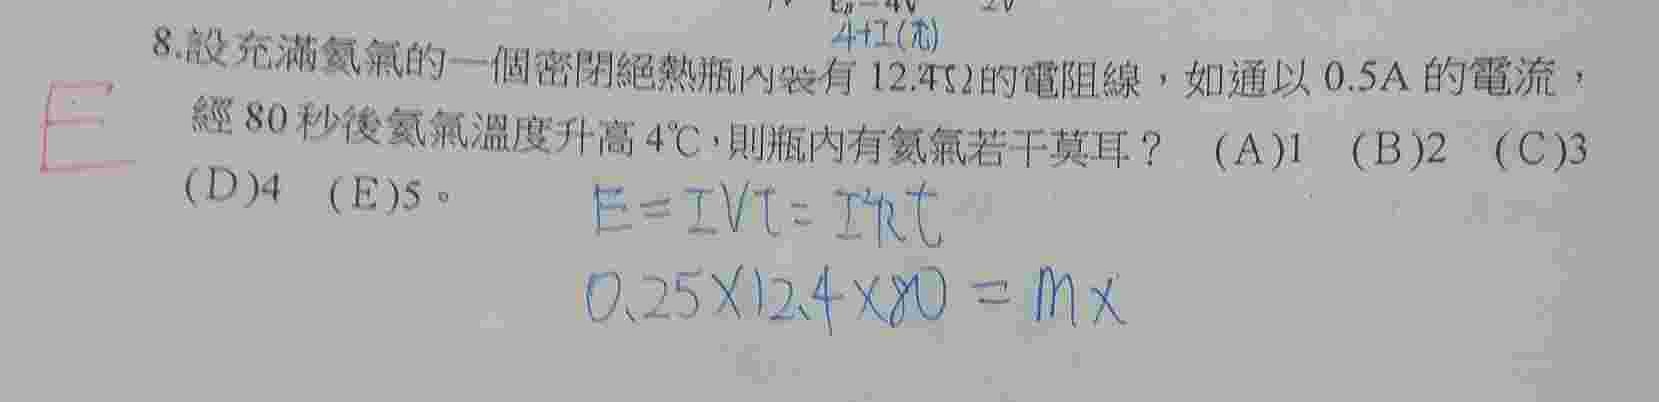 4+I(
8.設充滿氦氣的一個密閉絕熱瓶內裝有 12.4Ω的電阻線,如通以 0.5A 的電流,
E
經 80 秒後氦氣溫度升高 4℃,則瓶內有氦氣若干莫耳? (A)1 (B)2 (C)3
(D)4 (E)5。
E=IVt=I²Rt
0.25×12.4×80=mx